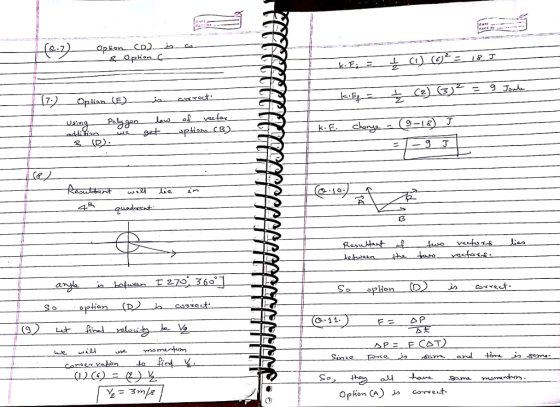 (Q.7) Option (D) is as
& Option C
(7.) Option (E) is correct.
Using Polygon law of vector
addition we get option (B)
& (D).
(8)
Resultant will lie in
4th quadrant.
angle is between [270°, 360°]
So option (D) is correct.
(9) Let final velocity be V2
we will use momentum
conservation to find V2.
(1)(6) = (2) V2
V2 = 3m/s
K.Ei = 1/2 (1) (6)² = 18 J
K.Ef = 1/2 (2) (3)² = 9 Joule
K.E. change = (9-18) J
= -9 J
(Q.10.) A R
B
Resultant of two vectors lies
between the two vectors.
So option (D) is correct.
(Q.11.) F = ΔP/Δt
ΔP = F(ΔT)
Since Force is same and time is same.
So, they all have same momentum.
Option (A) is correct